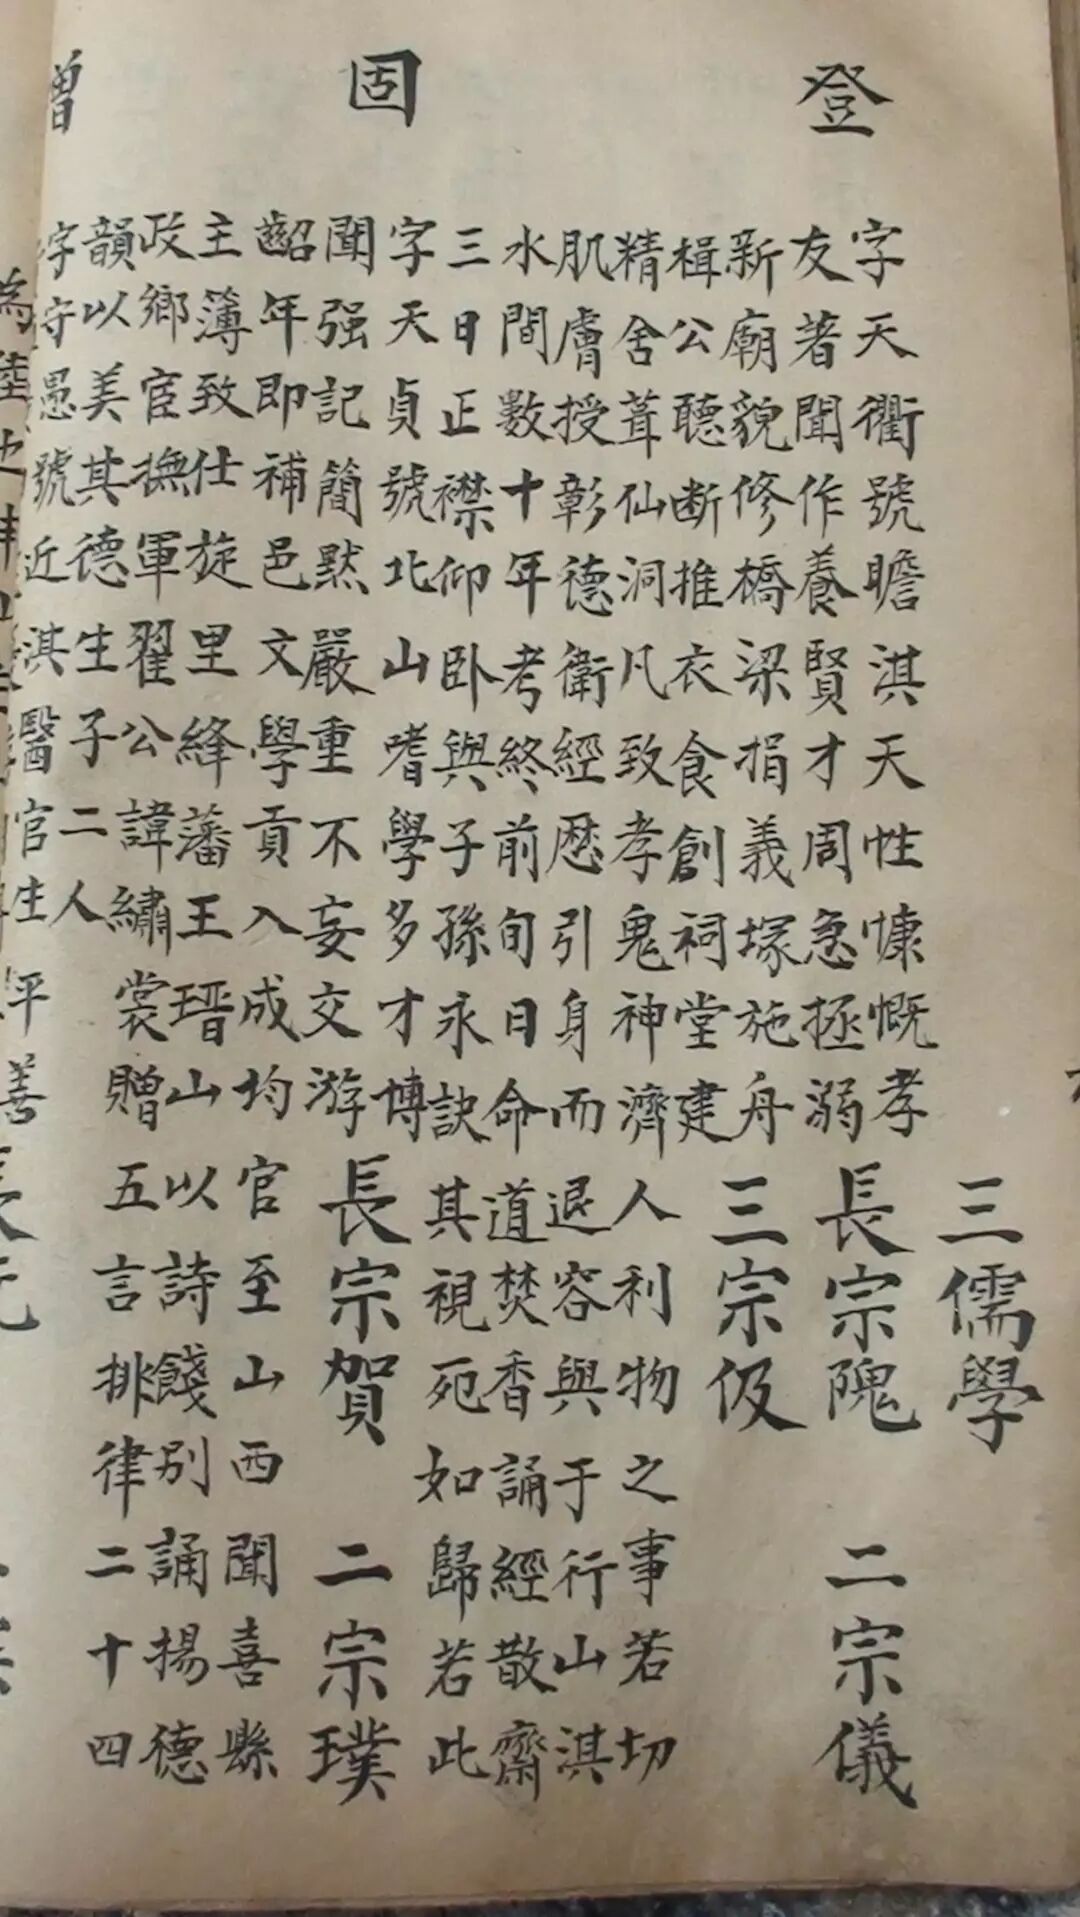 三儒學
登
字天衢號瞻淇天性慷慨孝
友著聞作養賢才周急拯溺
長宗隗 二宗儀
新廟貌修橋梁捐義塚施舟
楫公聽断推衣食創祠堂建
三宗伋
精舍葺仙洞凡致孝鬼神濟人利物之事若切
肌膚授彰德衛經歷引身而退容與于行山淇
水間數十年考終前旬日命道焚香誦經散齋
三日正襟仰卧與子孫永訣其視死如歸若此
固
字天貞號北山嗜學多才博
聞强記簡默嚴重不妄交游
長宗賀 二宗璞
齠年即補邑文學貢入成均官至山西聞喜縣
主簿致仕旋里絳藩王瑨山以詩餞別誦揚德
政鄉宦撫軍翟公諱繡裳贈五言排律二十四
韻以美其德生子二人
增
字守愚號近淇醫官生平善